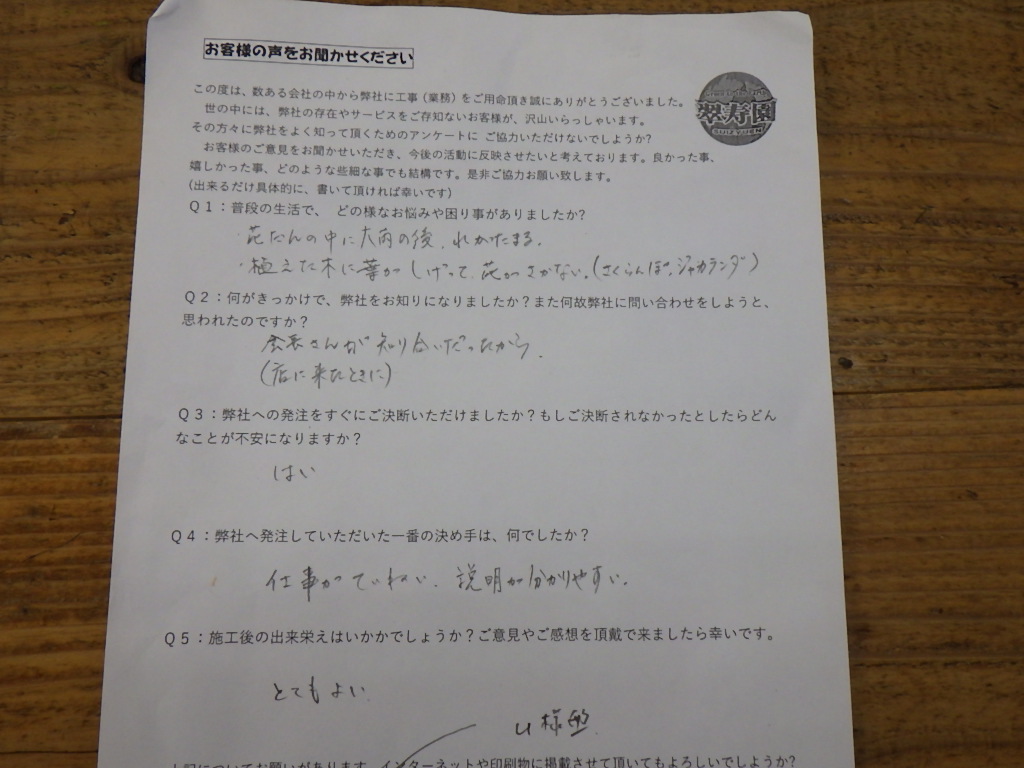 お客様の声をお聞かせください
翠寿園
SUIZYUEN
この度は、数ある会社の中から弊社に工事（業務）をご用命頂き誠にありがとうございました。
世の中には、弊社の存在やサービスをご存知ないお客様が、沢山いらっしゃいます。
その方々に弊社をよく知って頂くためのアンケートに ご協力いただけないでしょうか?
お客様のご意見をお聞かせいただき、今後の活動に反映させたいと考えております。良かった事、
嬉しかった事、どのような些細な事でも結構です。是非ご協力お願い致します。
（出来るだけ具体的に、書いて頂ければ幸いです）
Q1：普段の生活で、 どの様なお悩みや困り事がありましたか?
・花だんの中に大雨の後、水がたまる。
・植えた木に葉がしげって、花がさかない。（さくらんぼ、ジャカランダ）
Q2：何がきっかけで、弊社をお知りになりましたか？また何故弊社に問い合わせをしようと、
思われたのですか？
会長さんが知り合いだったから。
（店に来たときに）
Q3：弊社への発注をすぐにご決断いただけましたか？もしご決断されなかったとしたらどん
なことが不安になりますか？
はい
Q4：弊社へ発注していただいた一番の決め手は、何でしたか？
仕事がていねい、説明が分かりやすい。
Q5：施工後の出来栄えはいかかでしょうか？ご意見やご感想を頂戴で来ましたら幸いです。
とてもよい
U様邸
上記についてお願いがあります。インターネットや印刷物に掲載させて頂いてもよろしいでしょうか？